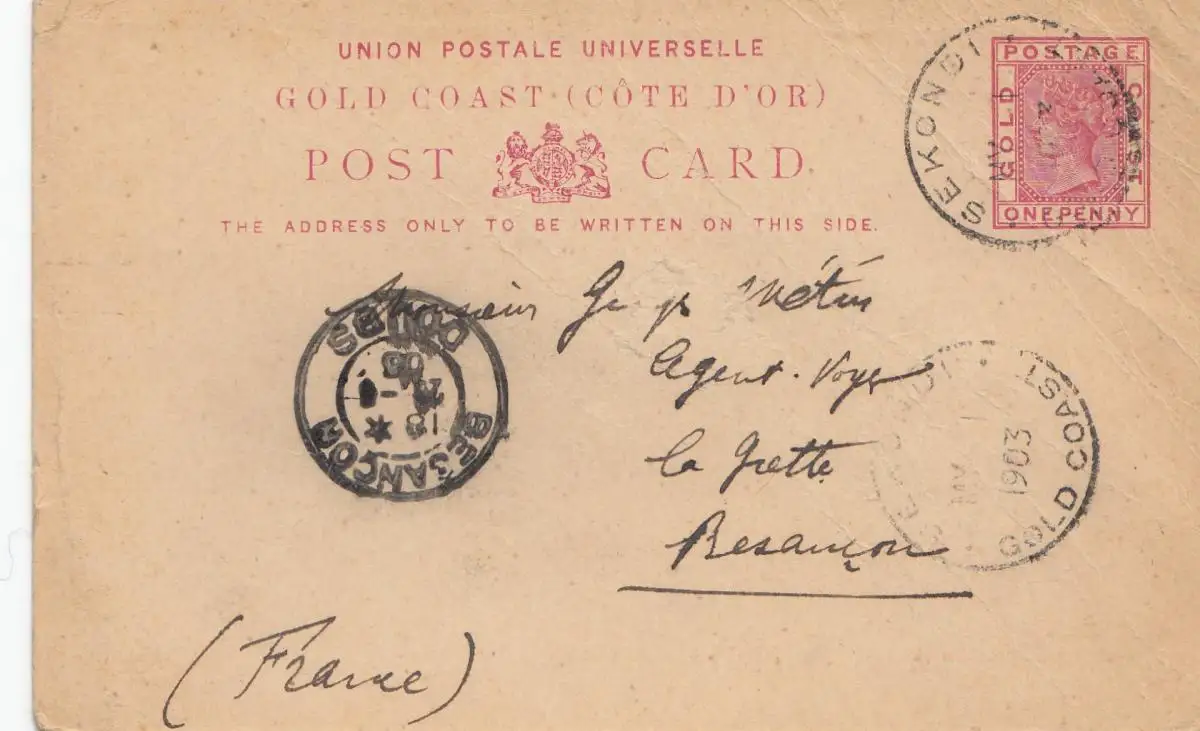 UNION POSTALE UNIVERSELLE
GOLD COAST (CÔTE D'OR)
POST CARD
THE ADDRESS ONLY TO BE WRITTEN ON THIS SIDE.
POSTAGE
GOLD COAST
ONE PENNY
SEKONDI
MY
Monsieur Métin
Agent-Voyer
la Grette
Besançon
(France)
BESANÇON
DOUBS
SEKONDI
MY 1
1903
GOLD COAST